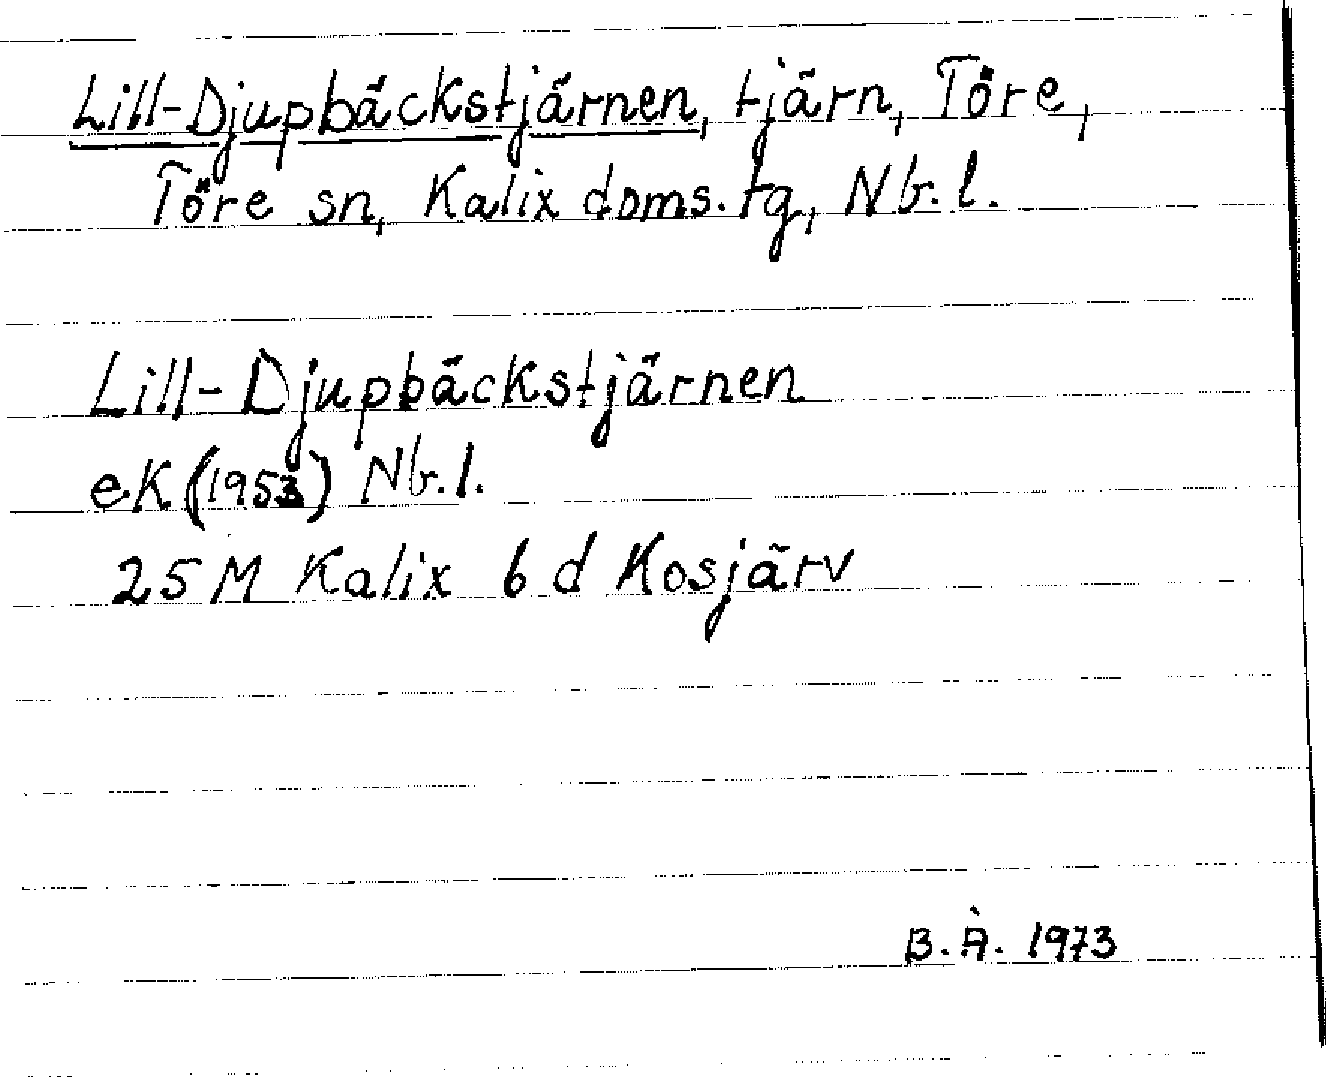 Lill-Djupbäckstjärnen, tjärn, Töre,
Töre sn, Kalix doms. tg, Nb. l.
Lill-Djupbäckstjärnen
eK (1953) Nb. l.
25 M Kalix 6 d Kosjärv
B. Å. 1973